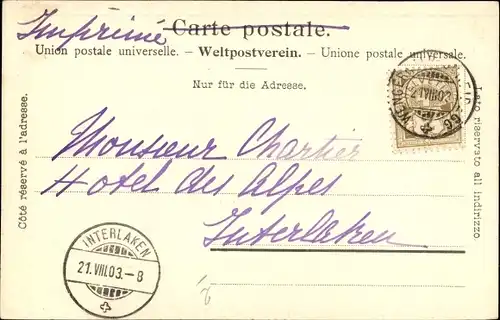 Imprimé
Carte postale.
Union postale universelle. - Weltpostverein. - Unione postale universale.
Nur für die Adresse.
Côté réservé à l'adresse.
Lato riservato all indirizzo
Monsieur Chartier
Hotel des Alpes
Interlaken
INTERLAKEN
21.VIII.03.-8